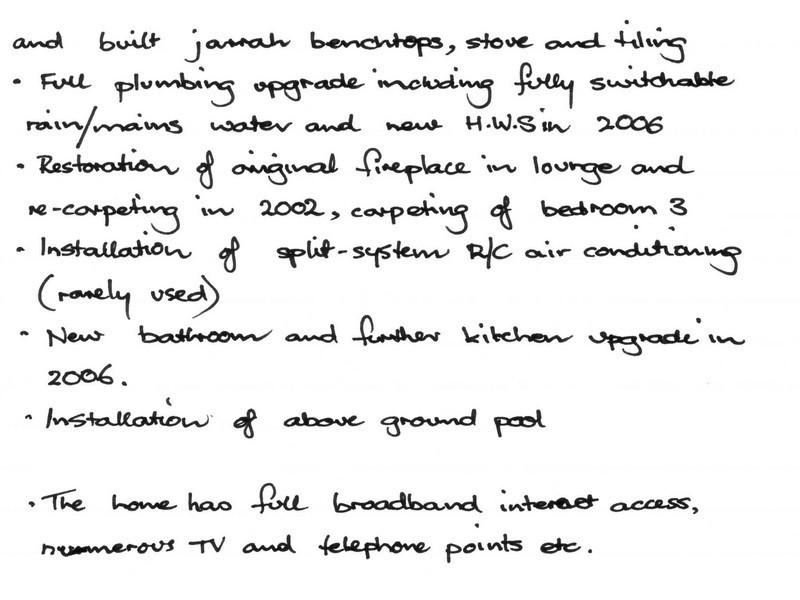 and built jarrah benchtops, stove and tiling
• Full plumbing upgrade including fully switchable
rain/mains water and new H.W.S in 2006
• Restoration of original fireplace in lounge and
re-carpeting in 2002, carpeting of bedroom 3
• Installation of split-system R/C air conditioning
(rarely used)
• New bathroom and further kitchen upgrade in
2006.
• Installation of above ground pool
• The home has full broadband internet access,
numerous TV and telephone points etc.